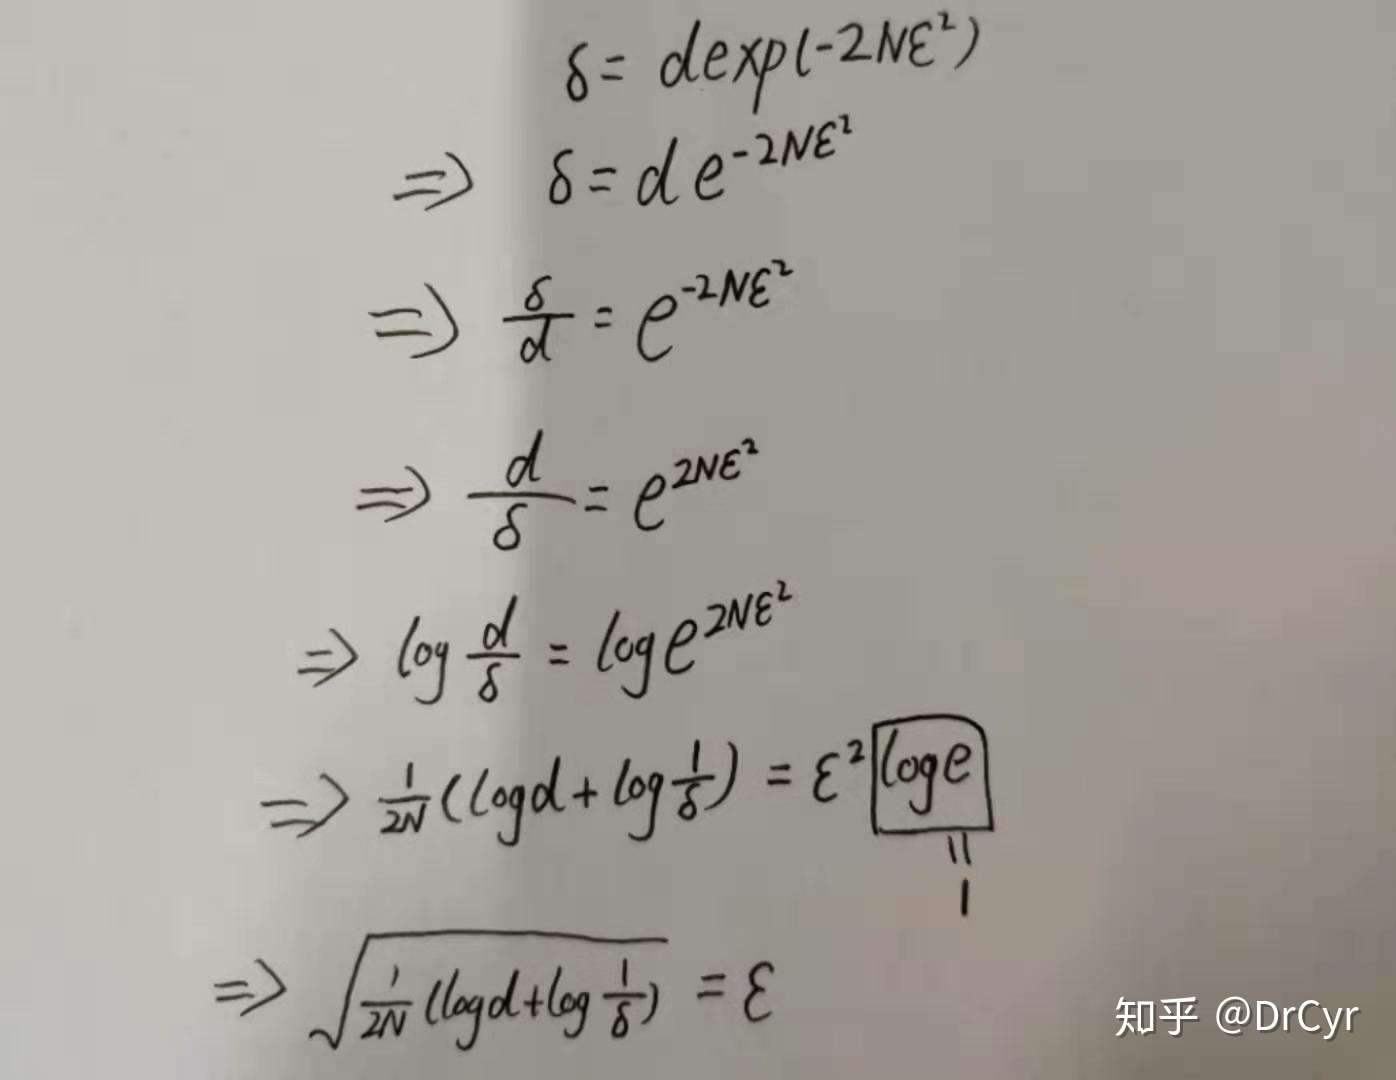 δ = d exp(-2Nε²)
⇒ δ = d e^{-2Nε²}
⇒ δ/d = e^{-2Nε²}
⇒ d/δ = e^{2Nε²}
⇒ log d/δ = log e^{2Nε²}
⇒ 1/2N (log d + log 1/δ) = ε² log e
=
1
⇒ √(1/2N (log d + log 1/δ)) = ε
知乎 @DrCyr